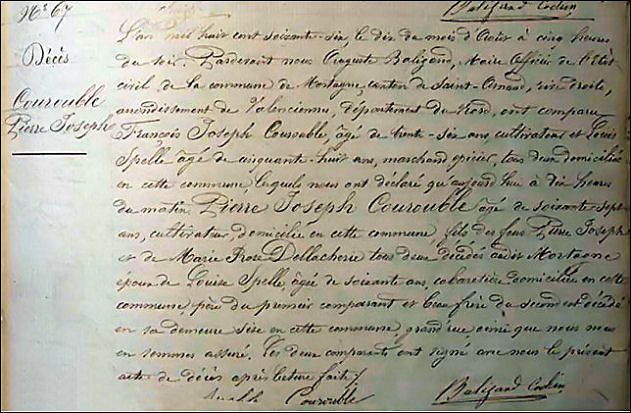 N° 67
Décès
Courouble
Pierre Joseph
Baligand Cochin
L'an mil huit cent soixante-six, le dix du mois d'Août à cinq heures
du soir. Pardevant nous Auguste Baligand, Maire Officier de l'Etat
civil, de la commune de Mortagne, canton de Saint-Amand, rive droite,
arrondissement de Valencienne, Département du Nord, ont comparu
François Joseph Courouble, âgé de trente-six ans, cultivateur et Louis
Spelle âgé de cinquante-huit ans, marchand épicier, tous deux domiciliés
en cette commune, lesquels nous ont déclaré qu'aujourd'hui à dix heures
du matin Pierre Joseph Courouble âgé de soixante sept
ans, cultivateur, domicilié en cette commune, fils des feus Pierre Joseph
et de Marie Rose Dellacherie tous deux décédés audit Mortagne
époux de Louise Spelle, âgée de soixante ans, cabaretière domiciliée en cette
commune, père du premier comparant et beau frère du second est décédé
en sa demeure sise en cette commune, grand'rue, ainsi que nous nous
en sommes assuré. Les deux comparants ont signé avec nous le présent
acte de décès après lecture faite.
Courouble
Baligand Cochin